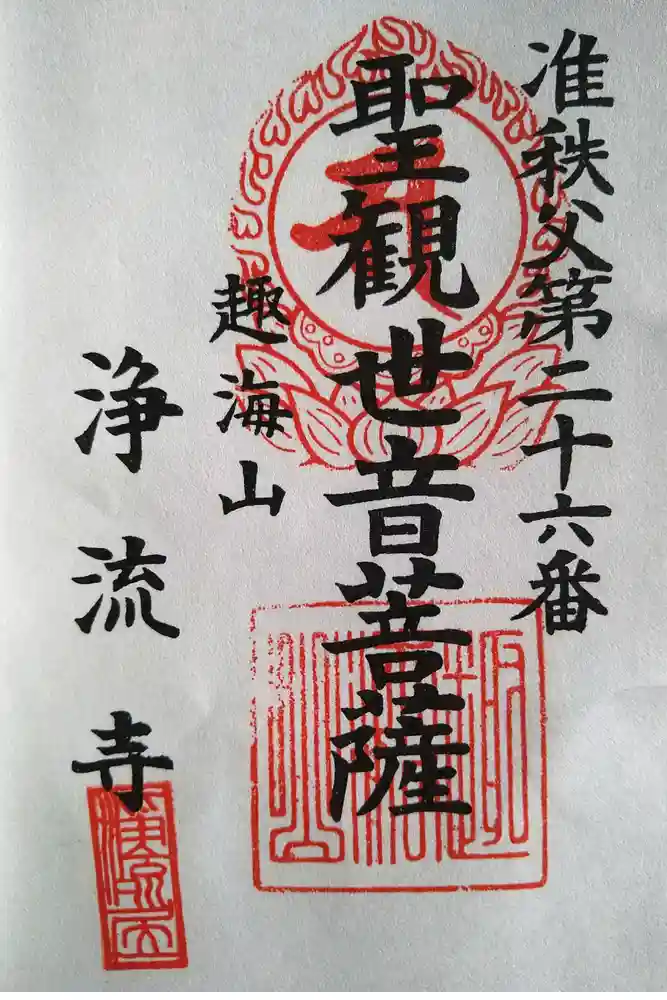 准秩父第二十六番
聖観世音菩薩
趣海山
浄流寺
趣海山